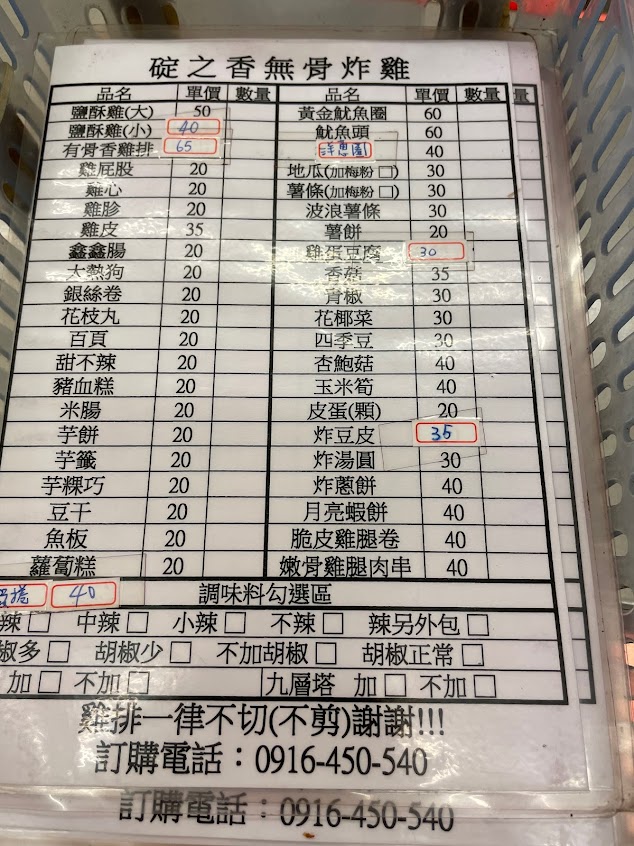 碇之香無骨炸雞
品名 單價 數量 品名 單價 數量 量
鹽酥雞(大) 50 黃金魷魚圈 60
鹽酥雞(小) 40 魷魚頭 60
有骨香雞排 65 洋蔥圈 40
雞屁股 20 地瓜(加梅粉□) 30
雞心 20 薯條(加梅粉□) 30
雞胗 20 波浪薯條 30
雞皮 35 薯餅 20
鑫鑫腸 20 雞蛋豆腐 30
大熱狗 20 香菇 35
銀絲卷 20 青椒 30
花枝丸 20 花椰菜 30
百頁 20 四季豆 30
甜不辣 20 杏鮑菇 40
豬血糕 20 玉米筍 40
米腸 20 皮蛋(顆) 20
芋餅 20 炸豆皮 35
芋籤 20 炸湯圓 30
芋粿巧 20 炸蔥餅 40
豆干 20 月亮蝦餅 40
魚板 20 脆皮雞腿卷 40
蘿蔔糕 20 嫩骨雞腿肉串 40
40 調味料勾選區
辣□ 中辣□ 小辣□ 不辣□ 辣另外包□
椒多□ 胡椒少□ 不加胡椒□ 胡椒正常□
加□ 不加□ 九層塔 加□ 不加□
雞排一律不切(不剪)謝謝!!!
訂購電話：0916-450-540
訂購電話：0916-450-540